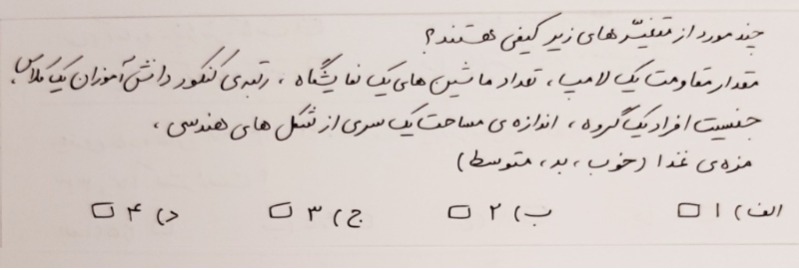 چند مورد از متغیّر های زیر کیفی هستند؟
مقدار مقاومت یک لامپ، تعداد ماشین های یک نمایشگاه، رتبه‌ی کنکور دانش آموزان یک کلاس،
جنسیت افراد یک گروه، اندازه‌ی مساحت یک سری از شکل های هندسی،
مزه‌ی غذا (خوب، بد، متوسط)
الف) ۱ □ ب) ۲ □ ج) ۳ □ د) ۴ □